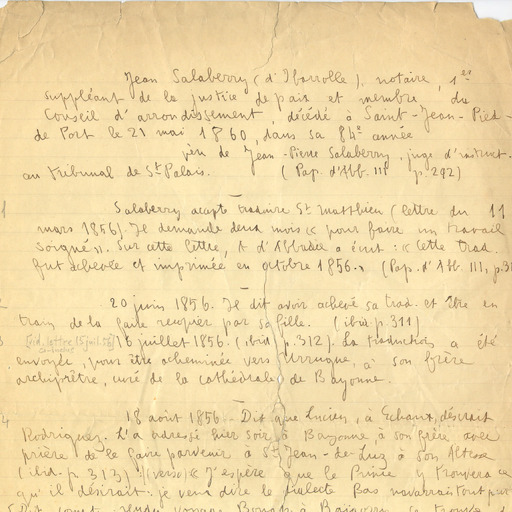 Jean Salaberry (d'Ibarrolle), notaire, 1er
suppléant de la justice de paix et membre du
Conseil d'arrondissement, décédé à Saint-Jean-Pied-
de Port le 21 mai 1860, dans sa 84e année
père de Jean-Pierre Salaberry, juge d'instruct.
au tribunal de St Palais. (Pap. d'Abb. III p. 292)
1 Salaberry accepte traduire St Matthieu (lettre du 11
mars 1856). Je demande deux mois « pour faire un travail
soigné ». Sur cette lettre, A d'Abbadie a écrit : « Cette trad.
fut achevée et imprimée en octobre 1856. » (Pap. d'Abb. III, p. 3
2 20 juin 1856. Je dit avoir achevé sa trad. et être en
train de la faire recopier par sa fille. (ibid p. 311)
3 16 juillet 1856. (ibid p. 312). La traduction a été
envoyée, pour être acheminée vers Urrugne, à son frère
archiprêtre, curé de la cathédrale de Bayonne.
4 18 août 1856. - Dit que Lucien, à Echaux, désirait
Rodriguez. L'a adressé hier soir à Bayonne, à son frère avec
prière de le faire parvenir à St Jean-de-Luz à Son Altesse
(ibid. p. 313) (verso) « J'espère que le Prince y trouvera ce
qu'il désirait : je veux dire le dialecte Bas navarrais tout pur